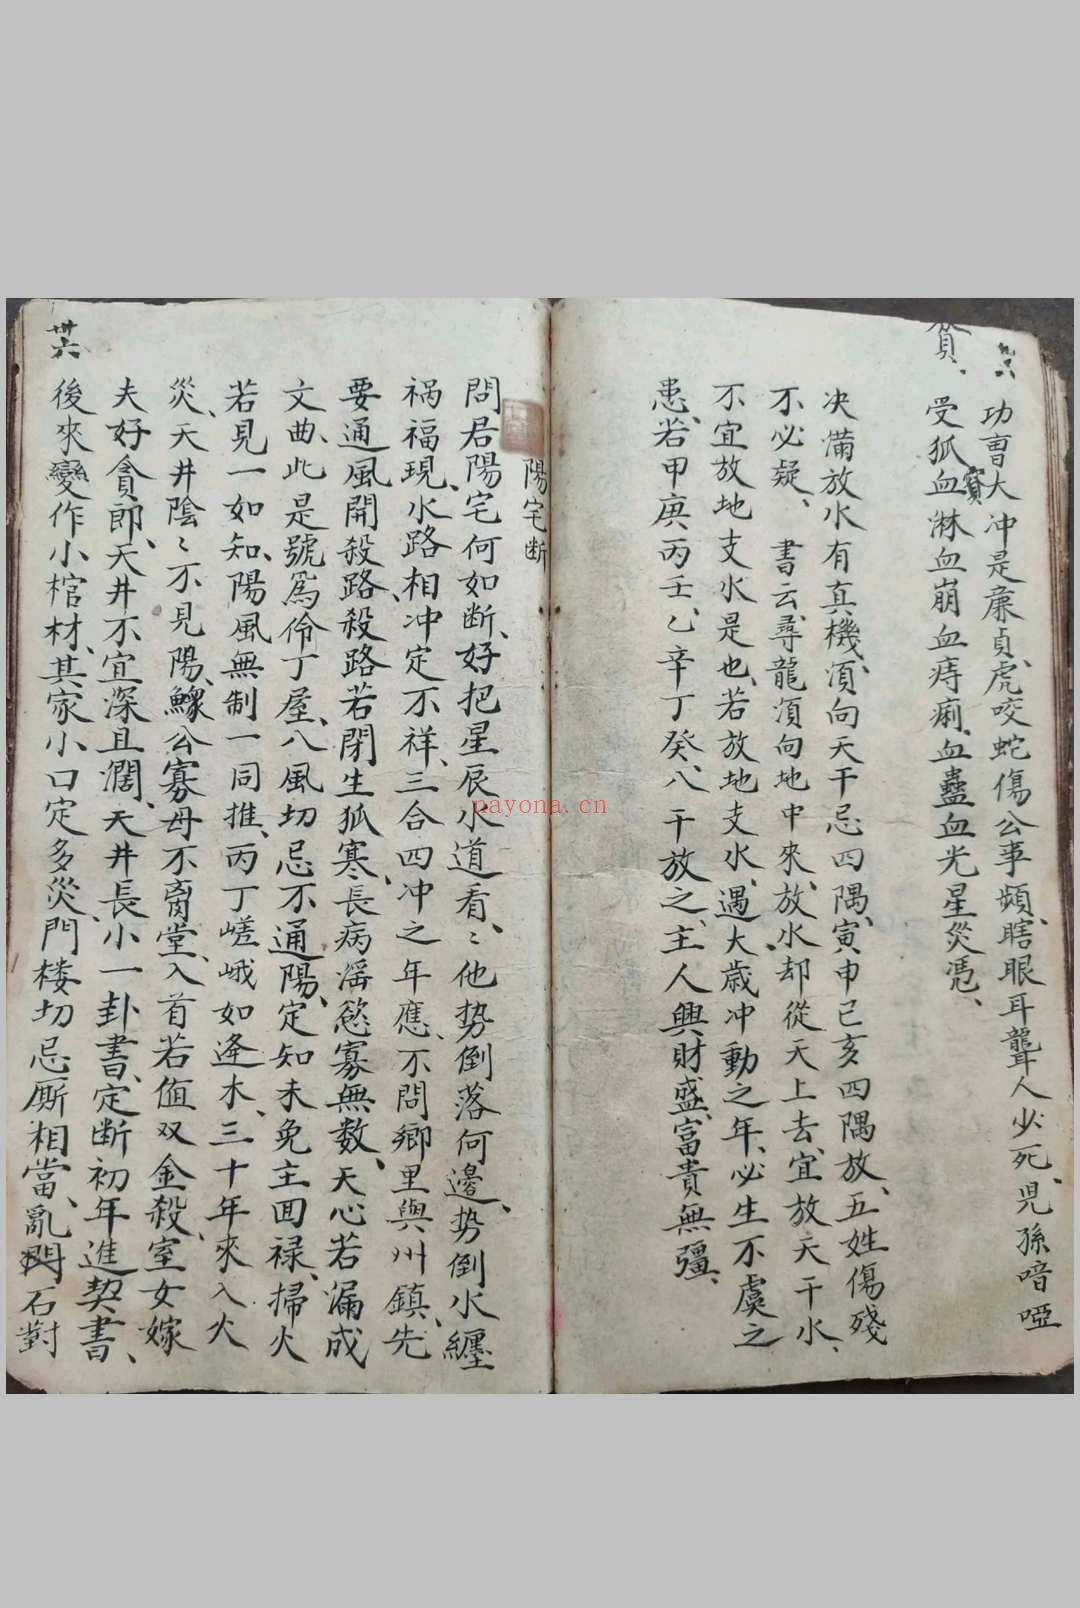 貧、
功曹大冲是廉貞、虎咬蛇傷公事頻、瞎眼耳聾人少死、児孫喑啞
受狐血淋血崩血痔痢、血蠱血光星災憑、
寳
决備放水有真機、湏向天干忌四隅、寅申巳亥四隅放、五姓傷殘
不必疑、書云、尋龍湏向地中來、放水却從天上去、宜放天干水、
不宜放地支水是也、若放地支水、遇大歲冲動之年、必生不虞之
患、若甲庚丙壬、乙辛丁癸、八干放之、主人興財盛、富貴無彊、
陽宅断
問君陽宅何如断、好把星辰水道看、〻他势倒落何邊、势倒水纒
祸福現、水路相冲定不祥、三合四冲之年應、不問鄉里與州鎮、先
要通風開殺路、殺路若閉生狐寒、長病滛慾寡無数、天心若漏成
文曲、此是號爲伶丁屋、八風切忌不通陽、定知未免主囬禄、掃火
若見一如知、陽風無制一同推、丙丁嵯峨如逢木、三十年來入火
災、天井陰〻不見陽、鰥公寡母不离堂、入首若值双金殺、室女嫁
夫好貪郎、天井不宜深且濶、天井長小一卦書、定断初年進契書、
後來變作小棺材、其家小口定多災、門楼切忌厮相當、亂石對
卄六
payona.cn